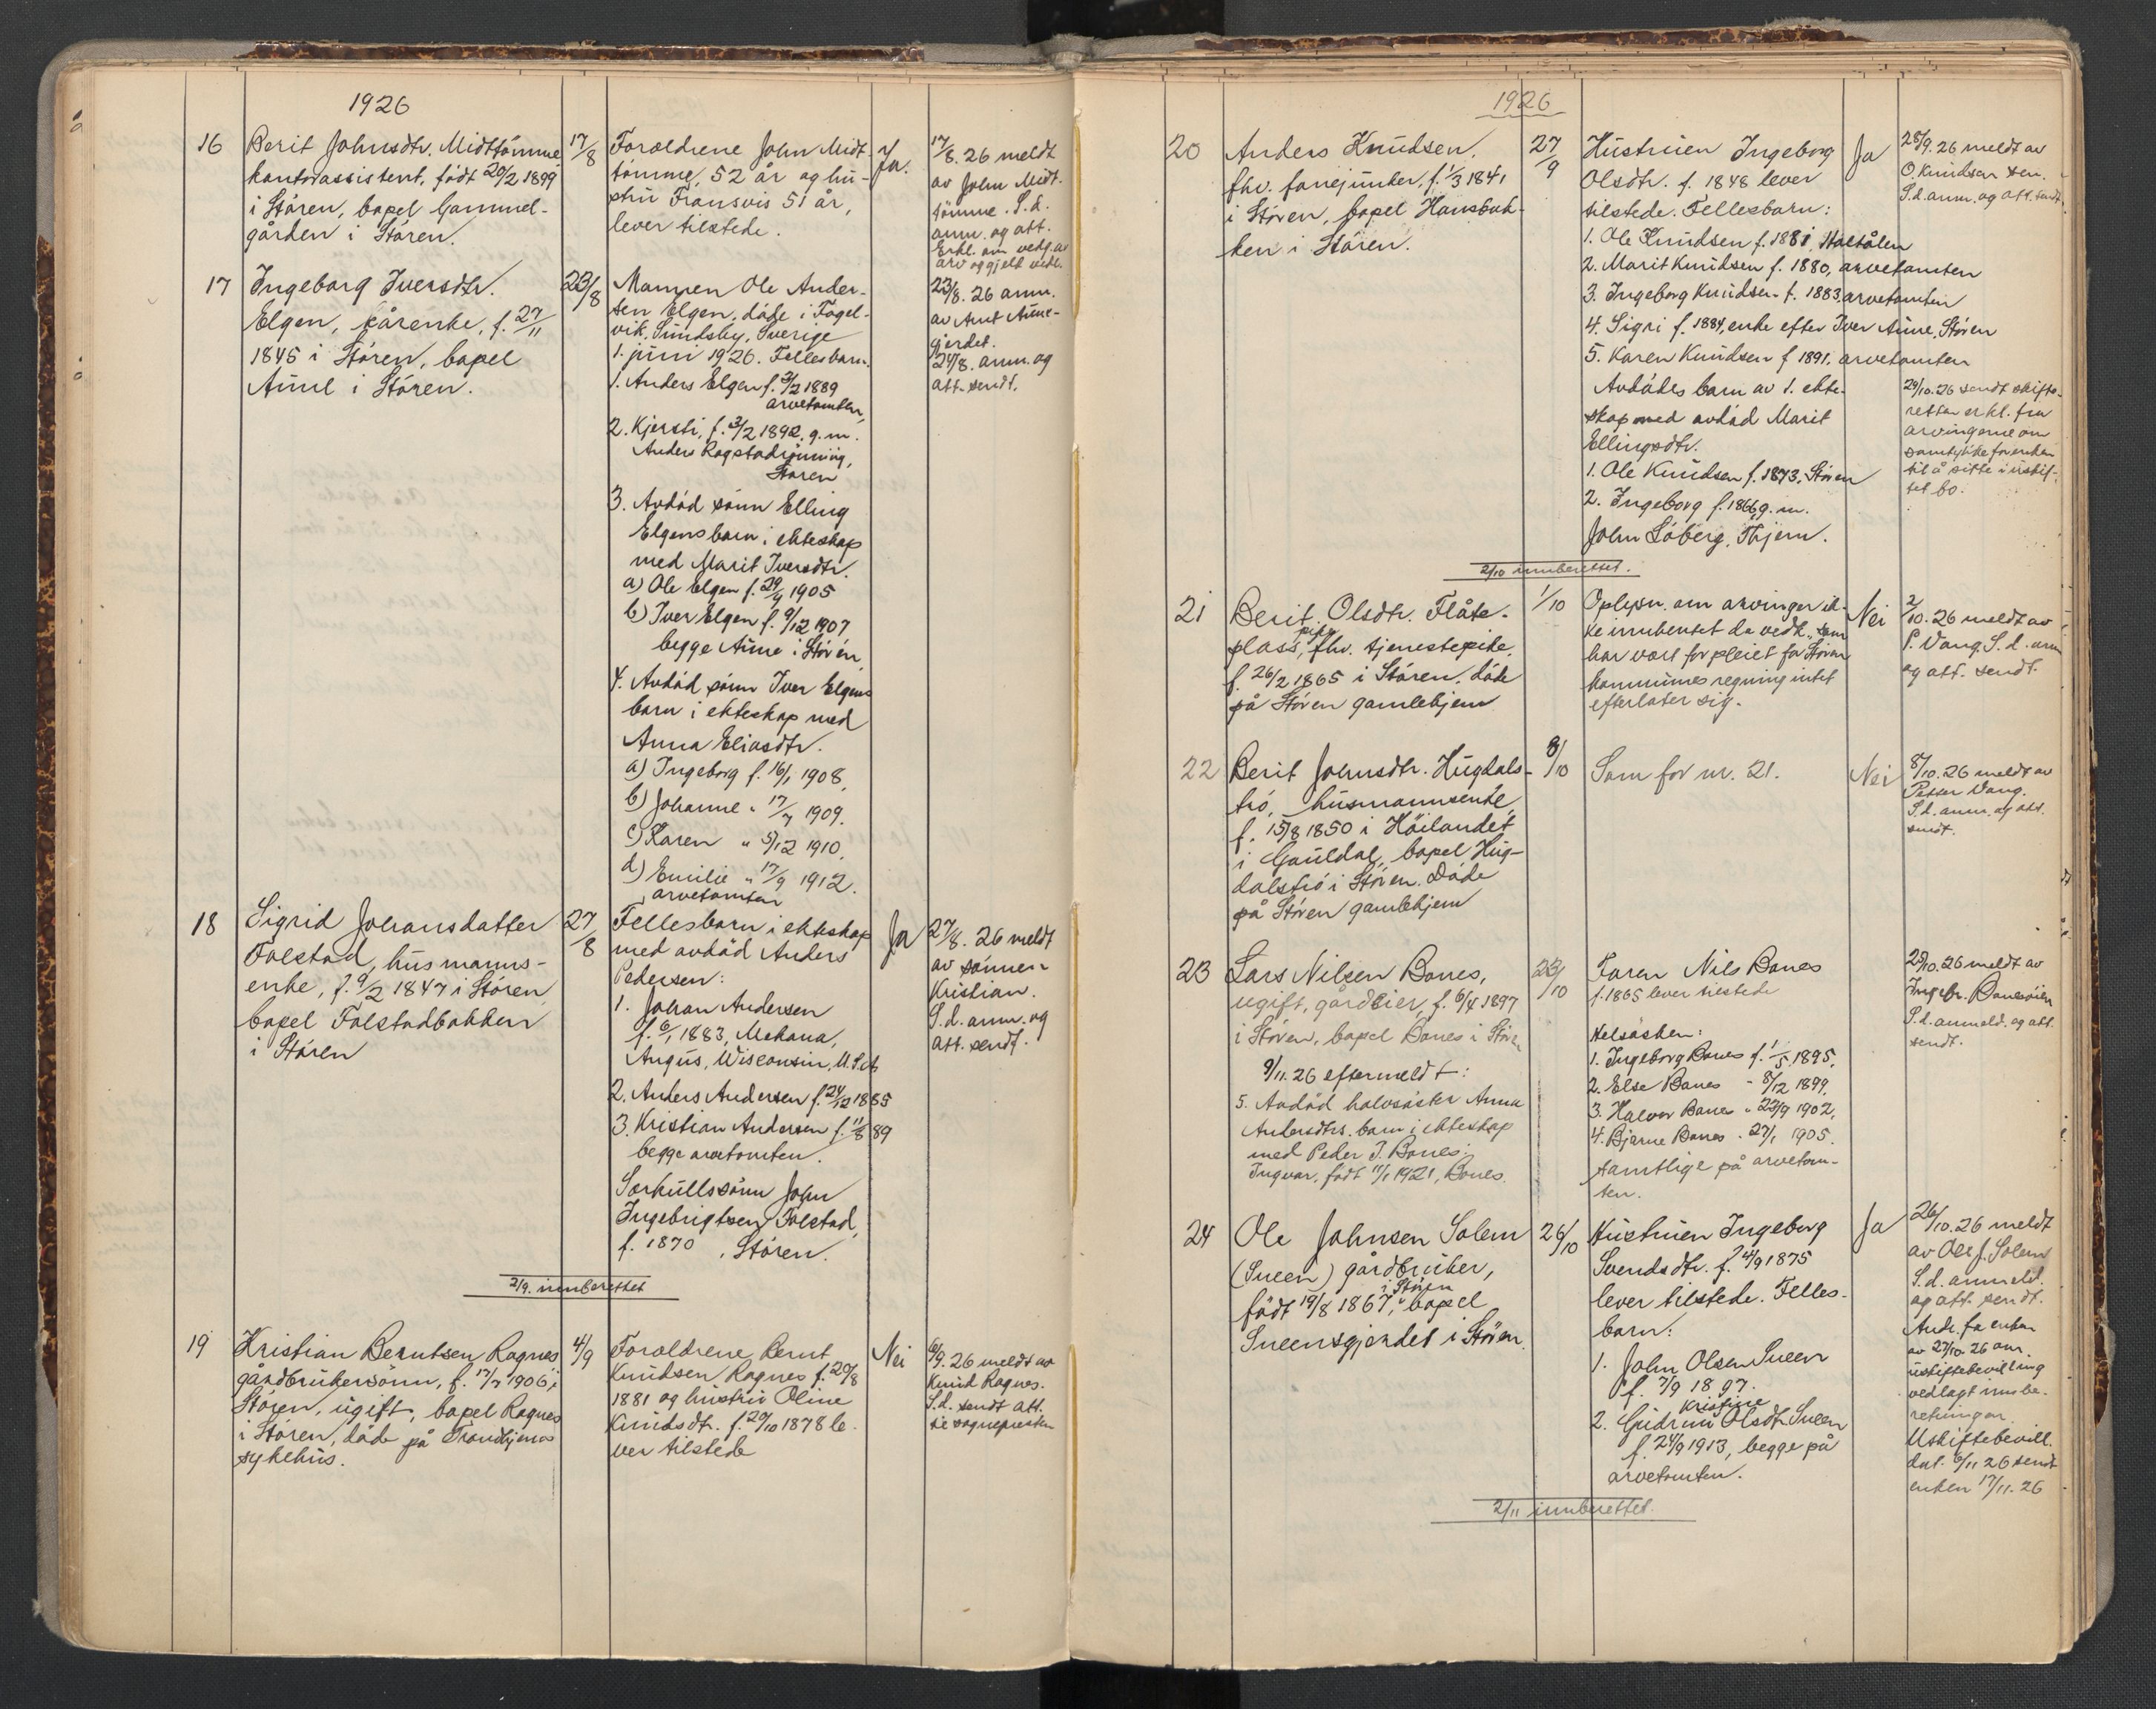 1926
16
Berit Johnsdtr. Midttømme
kontorassistent, født 20/2 1899
i Støren, bopel Gammel-
gården i Støren.
17/8
Foreldrene John Midt-
tømme, 52 år og hu-
stru 51 år,
lever tilstede.
Ja.
17/8. 26 meldt
av John Midt-
tømme. S.d.
anm. og att.
Erkl. om vedg. av
arv og gjeld vedl.
17
Ingeborg Iversdtr.
Elgen, kårenke, f. 27/11
1845 i Støren, bopel
Aune i Støren.
23/8
Mannen Ole Ander-
sen Elgen, døde i Fagel-
vik, Sundsby, Sverige
1. juni 1926. Fellesbarn.
1. Anders Elgen f. 2/2 1889
arvetomten,
2. Kjersti, f. 3/2 1892, g.m.
Anders Rogstadrønning,
Støren
3. Avdød sønn Elling
Elgens barn i ekteskap
med Marit Iversdtr.
a) Ole Elgen f. 29/9 1905
b) Iver Elgen f. 9/12 1907
begge Aune i Støren,
4. Avdød sønn Iver Elgens
barn i ekteskap med
Anna Eliasdtr.
a) Ingeborg f. 16/1 1908,
b) Johanne " 17/7 1909.
c) Karen " 5/12 1910,
d) Emilie " 17/9 1912.
arvetomten
23/8. 26 anm.
av Arnt Aune-
gjerdet.
24/8. anm. og
att. sendt.
18
Sigrid Johansdatter
Folstad, husmanns-
enke, f. 9/2 1847 i Støren,
bopel Folstadbakken
i Støren
27/8
Fellesbarn i ekteskap
med avdød Anders
Pedersen:
1. Johan Andersen
f. 6/1 1883, Mekana,
Angus, Wisconsin, U.S.A.
2. Anders Andersen f. 24/12 1885
3. Kristian Andersen f. 11/8 89
begge arvetomten.
Særkullssønn John
Ingebrigtsen Folstad,
f. 1870, Støren.
Ja
27/8. 26 meldt
av sønnen
Kristian.
S.d. anm. og
att. sendt.
2/9. innberettet
19
Kristian Berntsen Rognes
gårdbrukersønn, f. 17/7 1906 i
Støren, ugift, bopel Rognes
i Støren, døde på Trondhjems
sykehus.
4/9
Foreldrene Bernt
Knudsen Rognes f. 20/8
1881 og hustru Oline
Knudsdtr. f. 20/10 1878 le-
ver tilstede
Nei
6/9. 26 meldt av
Knud Rognes.
S.d. sendt att.
til sognepresten
1926
20
Anders Knudsen,
fhv. fanejunker, f. 1/3 1841
i Støren, bopel Hansbak-
ken i Støren.
27/9
Hustruen Ingeborg
Olsdtr. f. 1848 lever
tilstede. Fellesbarn:
1. Ole Knudsen f. 1881, Haltdålen
2. Marit Knudsen f. 1880, arvetomten
3. Ingeborg Knudsen f. 1883, arvetomten
4. Sigri f. 1884, enke efter Iver Aune, Støren
5. Karen Knudsen f 1891, arvetomten
Avdødes barn av 1. ekte-
skap med avdød Marit
Ellingsdtr.
1. Ole Knudsen, f. 1873, Støren
2. Ingeborg f. 1866, g.m.
John Løberg, Hjem.
Ja
28/9. 26 meldt av
O. Knudsen sen.
S.d. anm. og att. sendt.
29/10. 26 sendt skifte-
retten erkl. fra
arvingerne om
samtykke for enken
til å sitte i uskif-
tet bo.
2/10 innberettet.
21
Berit Olsdtr. Flåte-
plass, pike, fhv. tjenestepike,
f. 26/2 1865 i Støren, døde
på Støren gamlehjem
1/10
Oplysn. om arvinger ik-
ke innhentet da vedk. som
har vært forpleiet for Støren
kommunes regning intet
efterlater sig.
Nei
2/10. 26 meldt av
P. Vang. S.d. anm
og att. sendt.
22
Berit Johnsdtr. Hugdals-
trø, husmannsenke
f. 15/8 1850 i Høilandet
i Gauldal, bopel Hug-
dalstrø i Støren. Døde
på Støren gamlehjem
8/10
Som for nr. 21.
Nei
8/10. 26 meldt av
Petter Vang.
S.d. anm. og att.
sendt.
23
Lars Nilsen Bones,
ugift, gårdeier, f. 6/4 1897
i Støren, bopel Bones i Støren
9/11. 26 eftermeldt:
5. Avdød halvsøster Anna
Andersdtrs. barn i ekteskap
med Peder J. Bones:
Ingvar, født 11/1 1921, Bones.
23/10
Faren Nils Bones
f. 1865 lever tilstede
Helsøsken:
1. Ingeborg Bones f. 1/5 1895,
2. Else Bones " 8/12 1899,
3. Halvor Bones " 23/9 1902,
4. Bjarne Bones " 27/1 1905.
samtlige på arvetom-
ten.
25/10. 26 meldt av
Ingebr. Bonesøien
S.d. anmeld. og att.
sendt.
24
Ole Johnsen Solem
(Sneen) gårdbruker,
født 19/8 1867 i Støren, bopel
Sneensgjerdet i Støren
26/10
Hustruen Ingeborg
Svendsdtr. f. 4/9 1875
lever tilstede. Felles-
barn:
1. John Olsen Sneen
f. 7/9 1897.
2. Gudrun Kristine Olsdtr Sneen
f. 24/9 1913, begge på
arvetomten.
Ja
26/10. 26 meldt
av Ole J. Solem
S.d. anmeld.
og att. sendt.
Andr. fra enken
av 27/10. 26 om
uskiftebevilling
vedlagt innbe-
retningen.
Uskiftebevill.
dat. 6/11 26 sendt
enken 17/11. 26
2/11 innberettet.